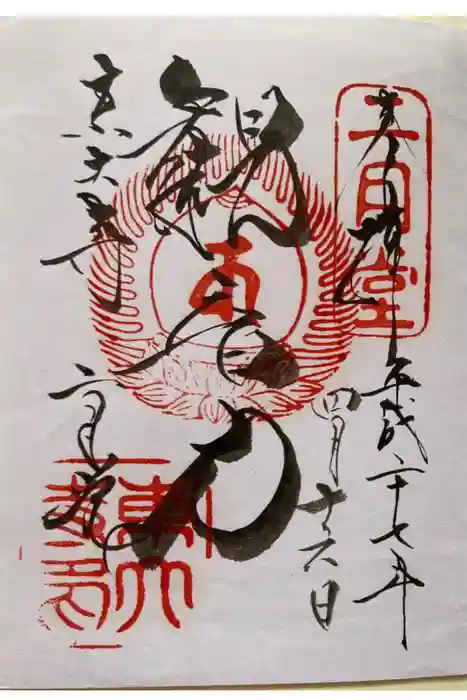 二月堂
奉拝 平成二十七年
四月十六日
觀音力
東大寺
二月堂